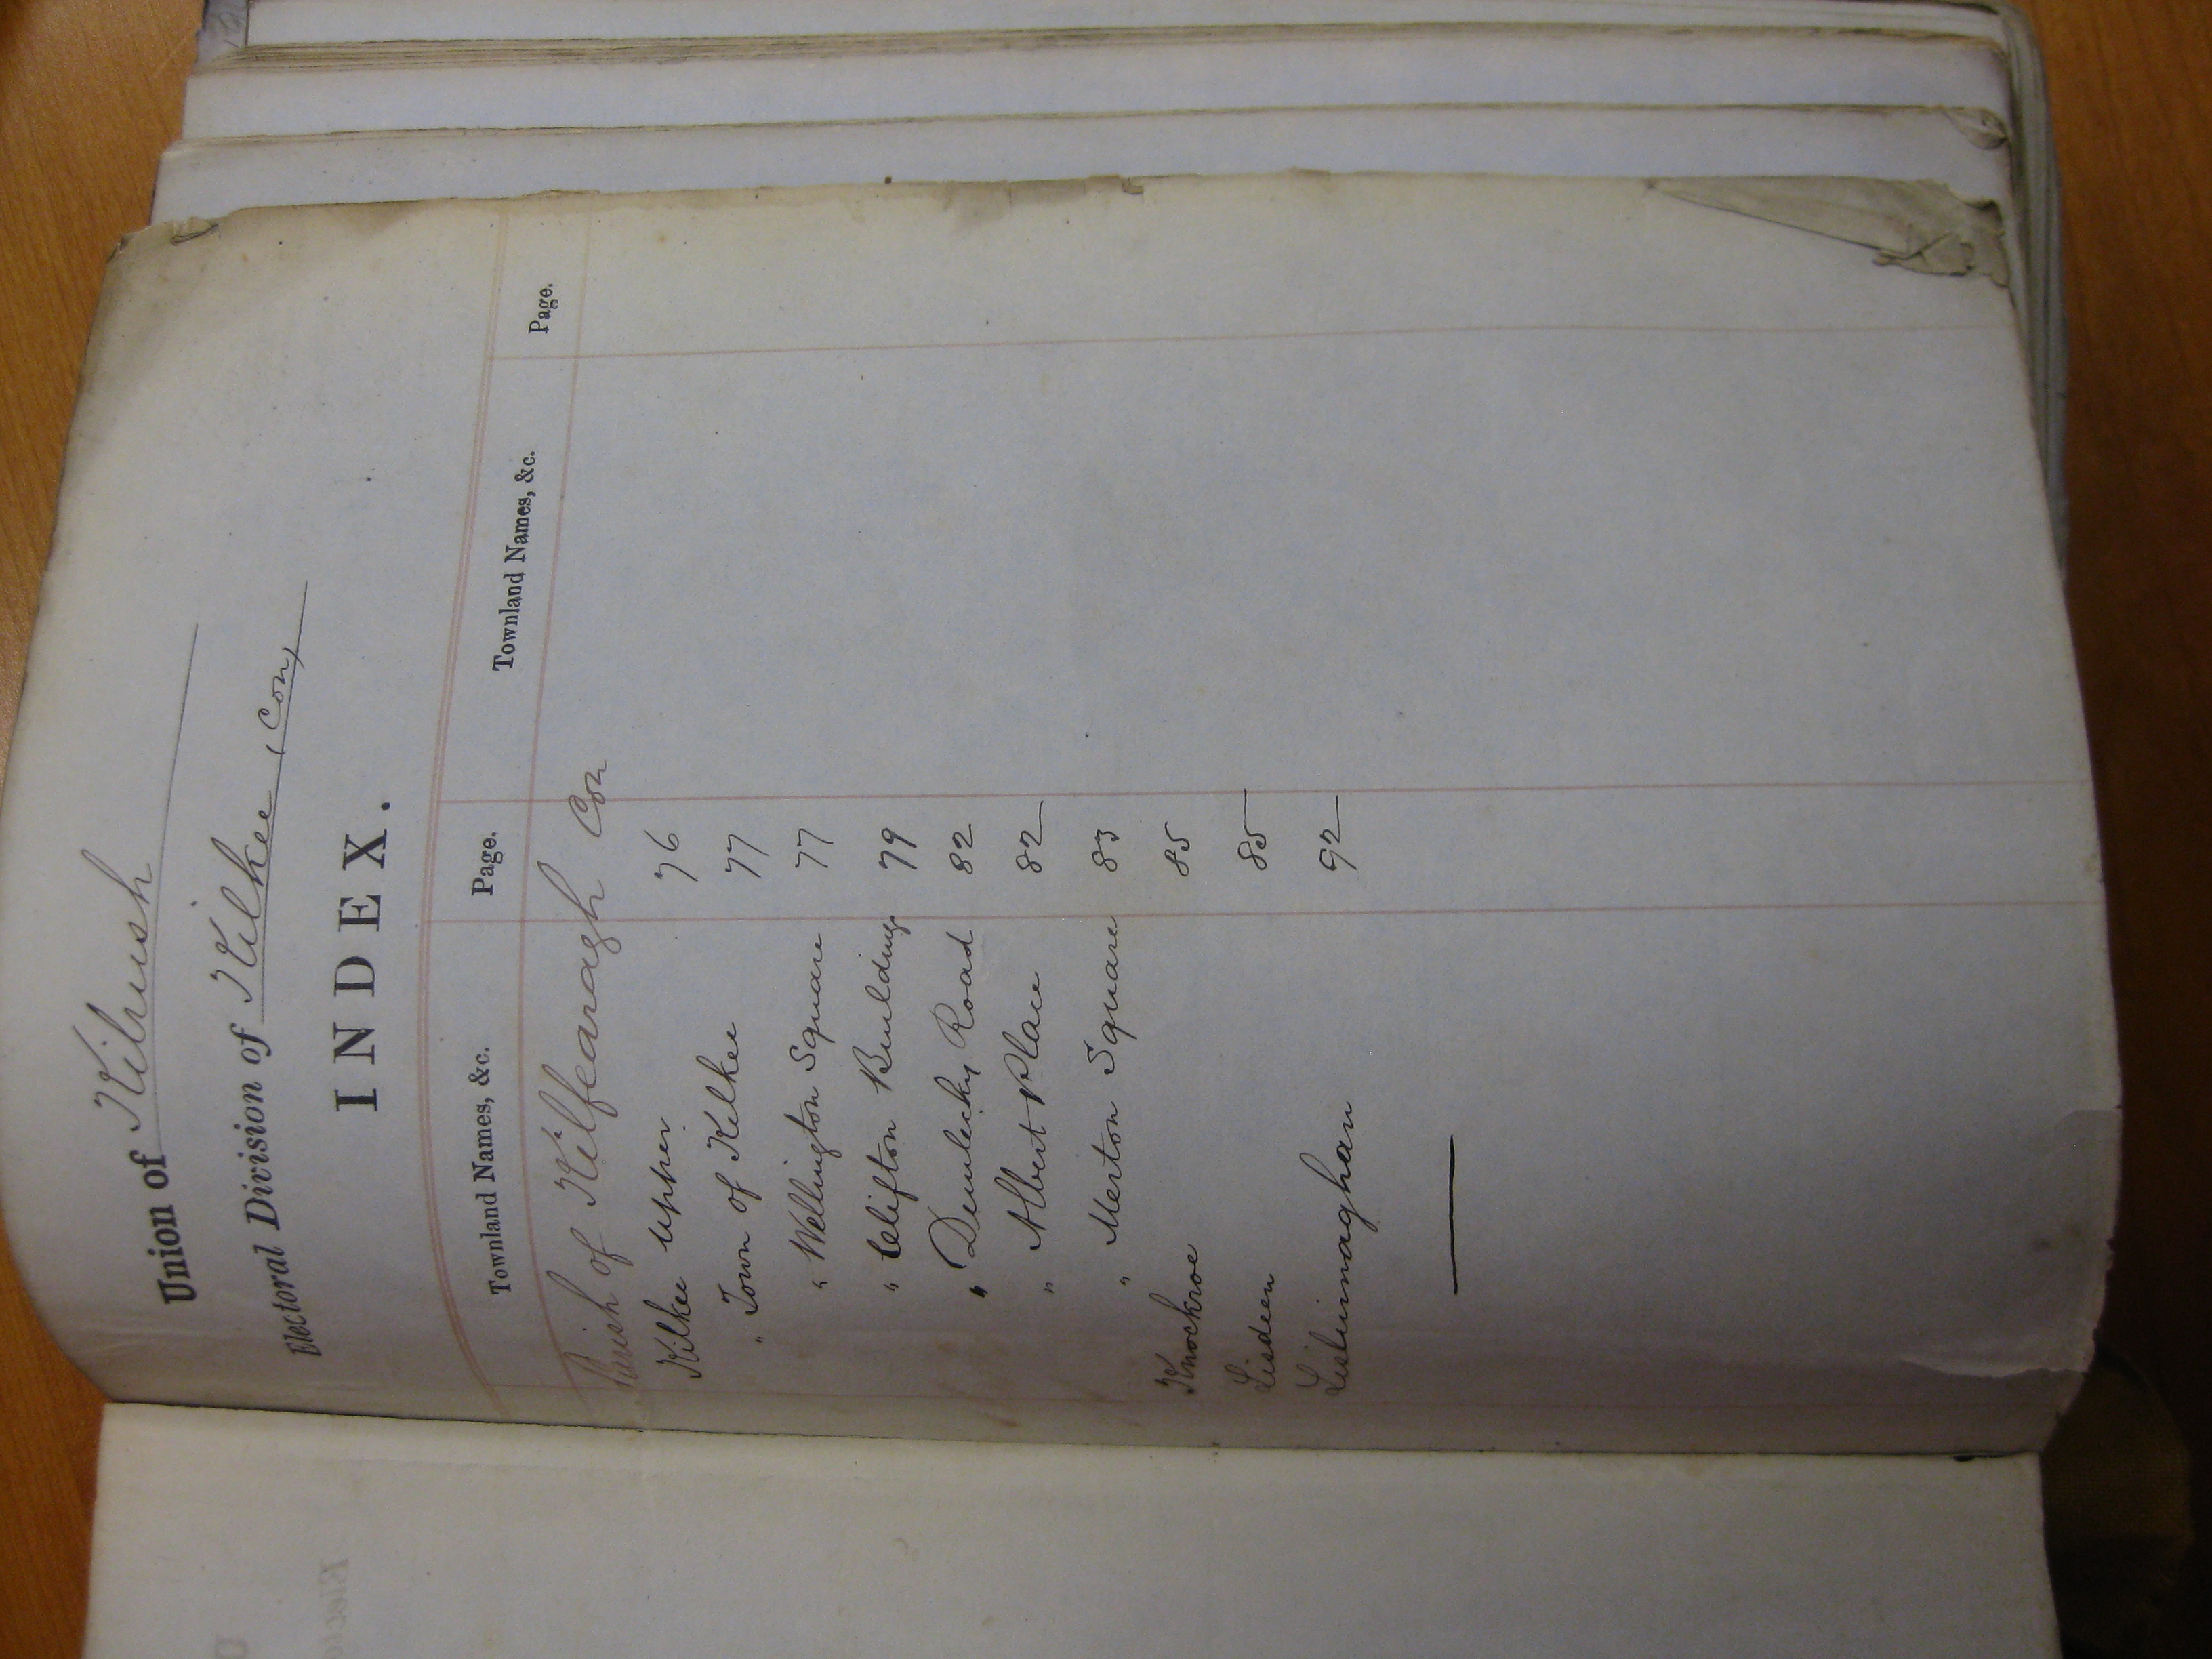 Union of Kilrush
Electoral Division of Kilkee (Con)
INDEX.
Townland Names, &c. Page. Townland Names, &c. Page.
Parish of Kilfearagh Con
Kilkee Upper 76
" Town of Kilkee 77
" Wellington Square 77
" Clifton Buildings 79
" Dunlicky Road 82
" Albert Place 82
" Merton Square 83
Knockroe 85
Lisdeen 85
Lisluinaghan 92